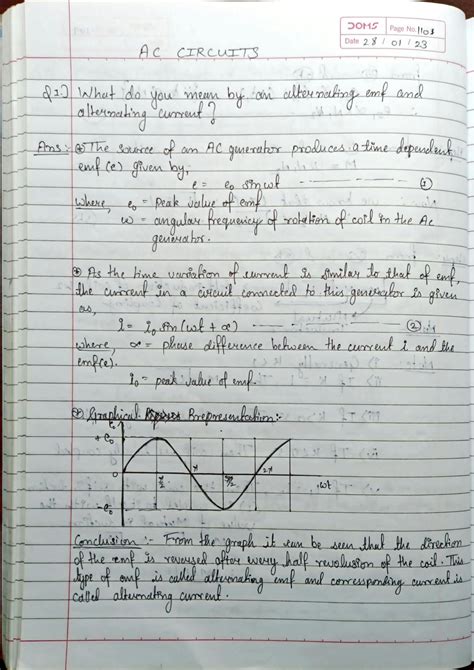 DOMS
Page No. 1103
Date 28 / 01 / 23
AC CIRCUITS
Q1.) What do you mean by an alternating emf and
alternating current?
Ans: The source of an AC generator produces a time dependent
emf (e) given by,
e = e₀ sin wt ---------- (1)
where, e₀ = peak value of emf
w = angular frequency of rotation of coil in the Ac
generator.
As the time variation of current is similar to that of emf,
the current in a circuit connected to this generator is given
as,
i = i₀ sin (wt + α) ---------- (2)
where, α = phase difference between the current i and the
emf(e).
i₀ = peak value of emf.
Graphical Brepresentation:-
+e₀
0
π/2
π
3π/2
2π
wt
-e₀
Conclusion :- From the graph it can be seen that the direction
of the emf is reversed after every half revolusion of the coil. This
type of emf is called alternating emf and corresponding current is
called alternating current.